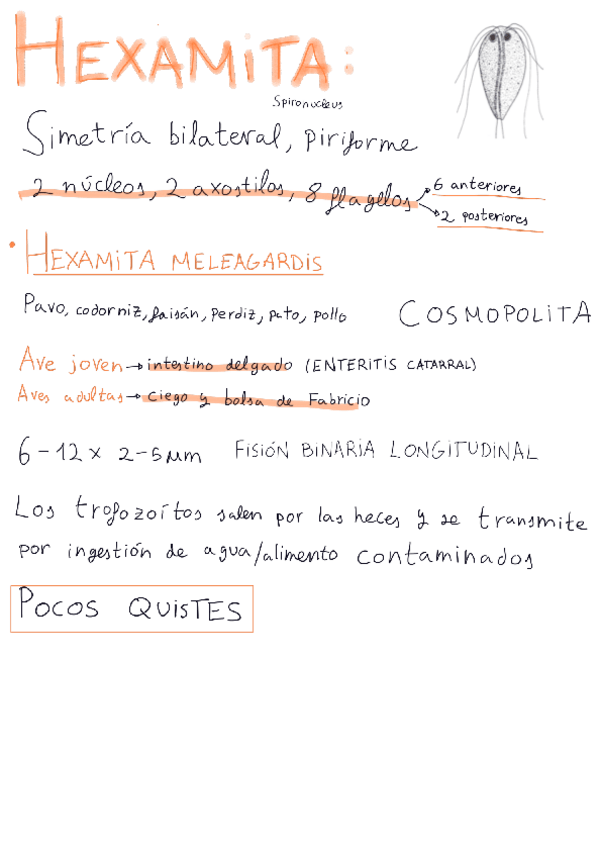 HEXAMITA:
Spironucleus
Simetría bilateral, piriforme
2 núcleos, 2 axostilos, 8 flagelos
6 anteriores
2 posteriores
• HEXAMITA MELEAGARDIS
Pavo, codorniz, faisán, perdiz, pato, pollo
COSMOPOLITA
Ave joven → intestino delgado (ENTERITIS CATARRAL)
Aves adultas → Ciego y bolsa de Fabricio
6-12 x 2-5 µm FISIÓN BINARIA LONGITUDINAL
Los trofozoítos salen por las heces y se transmite
por ingestión de agua/alimento contaminados
POCOS QUISTES